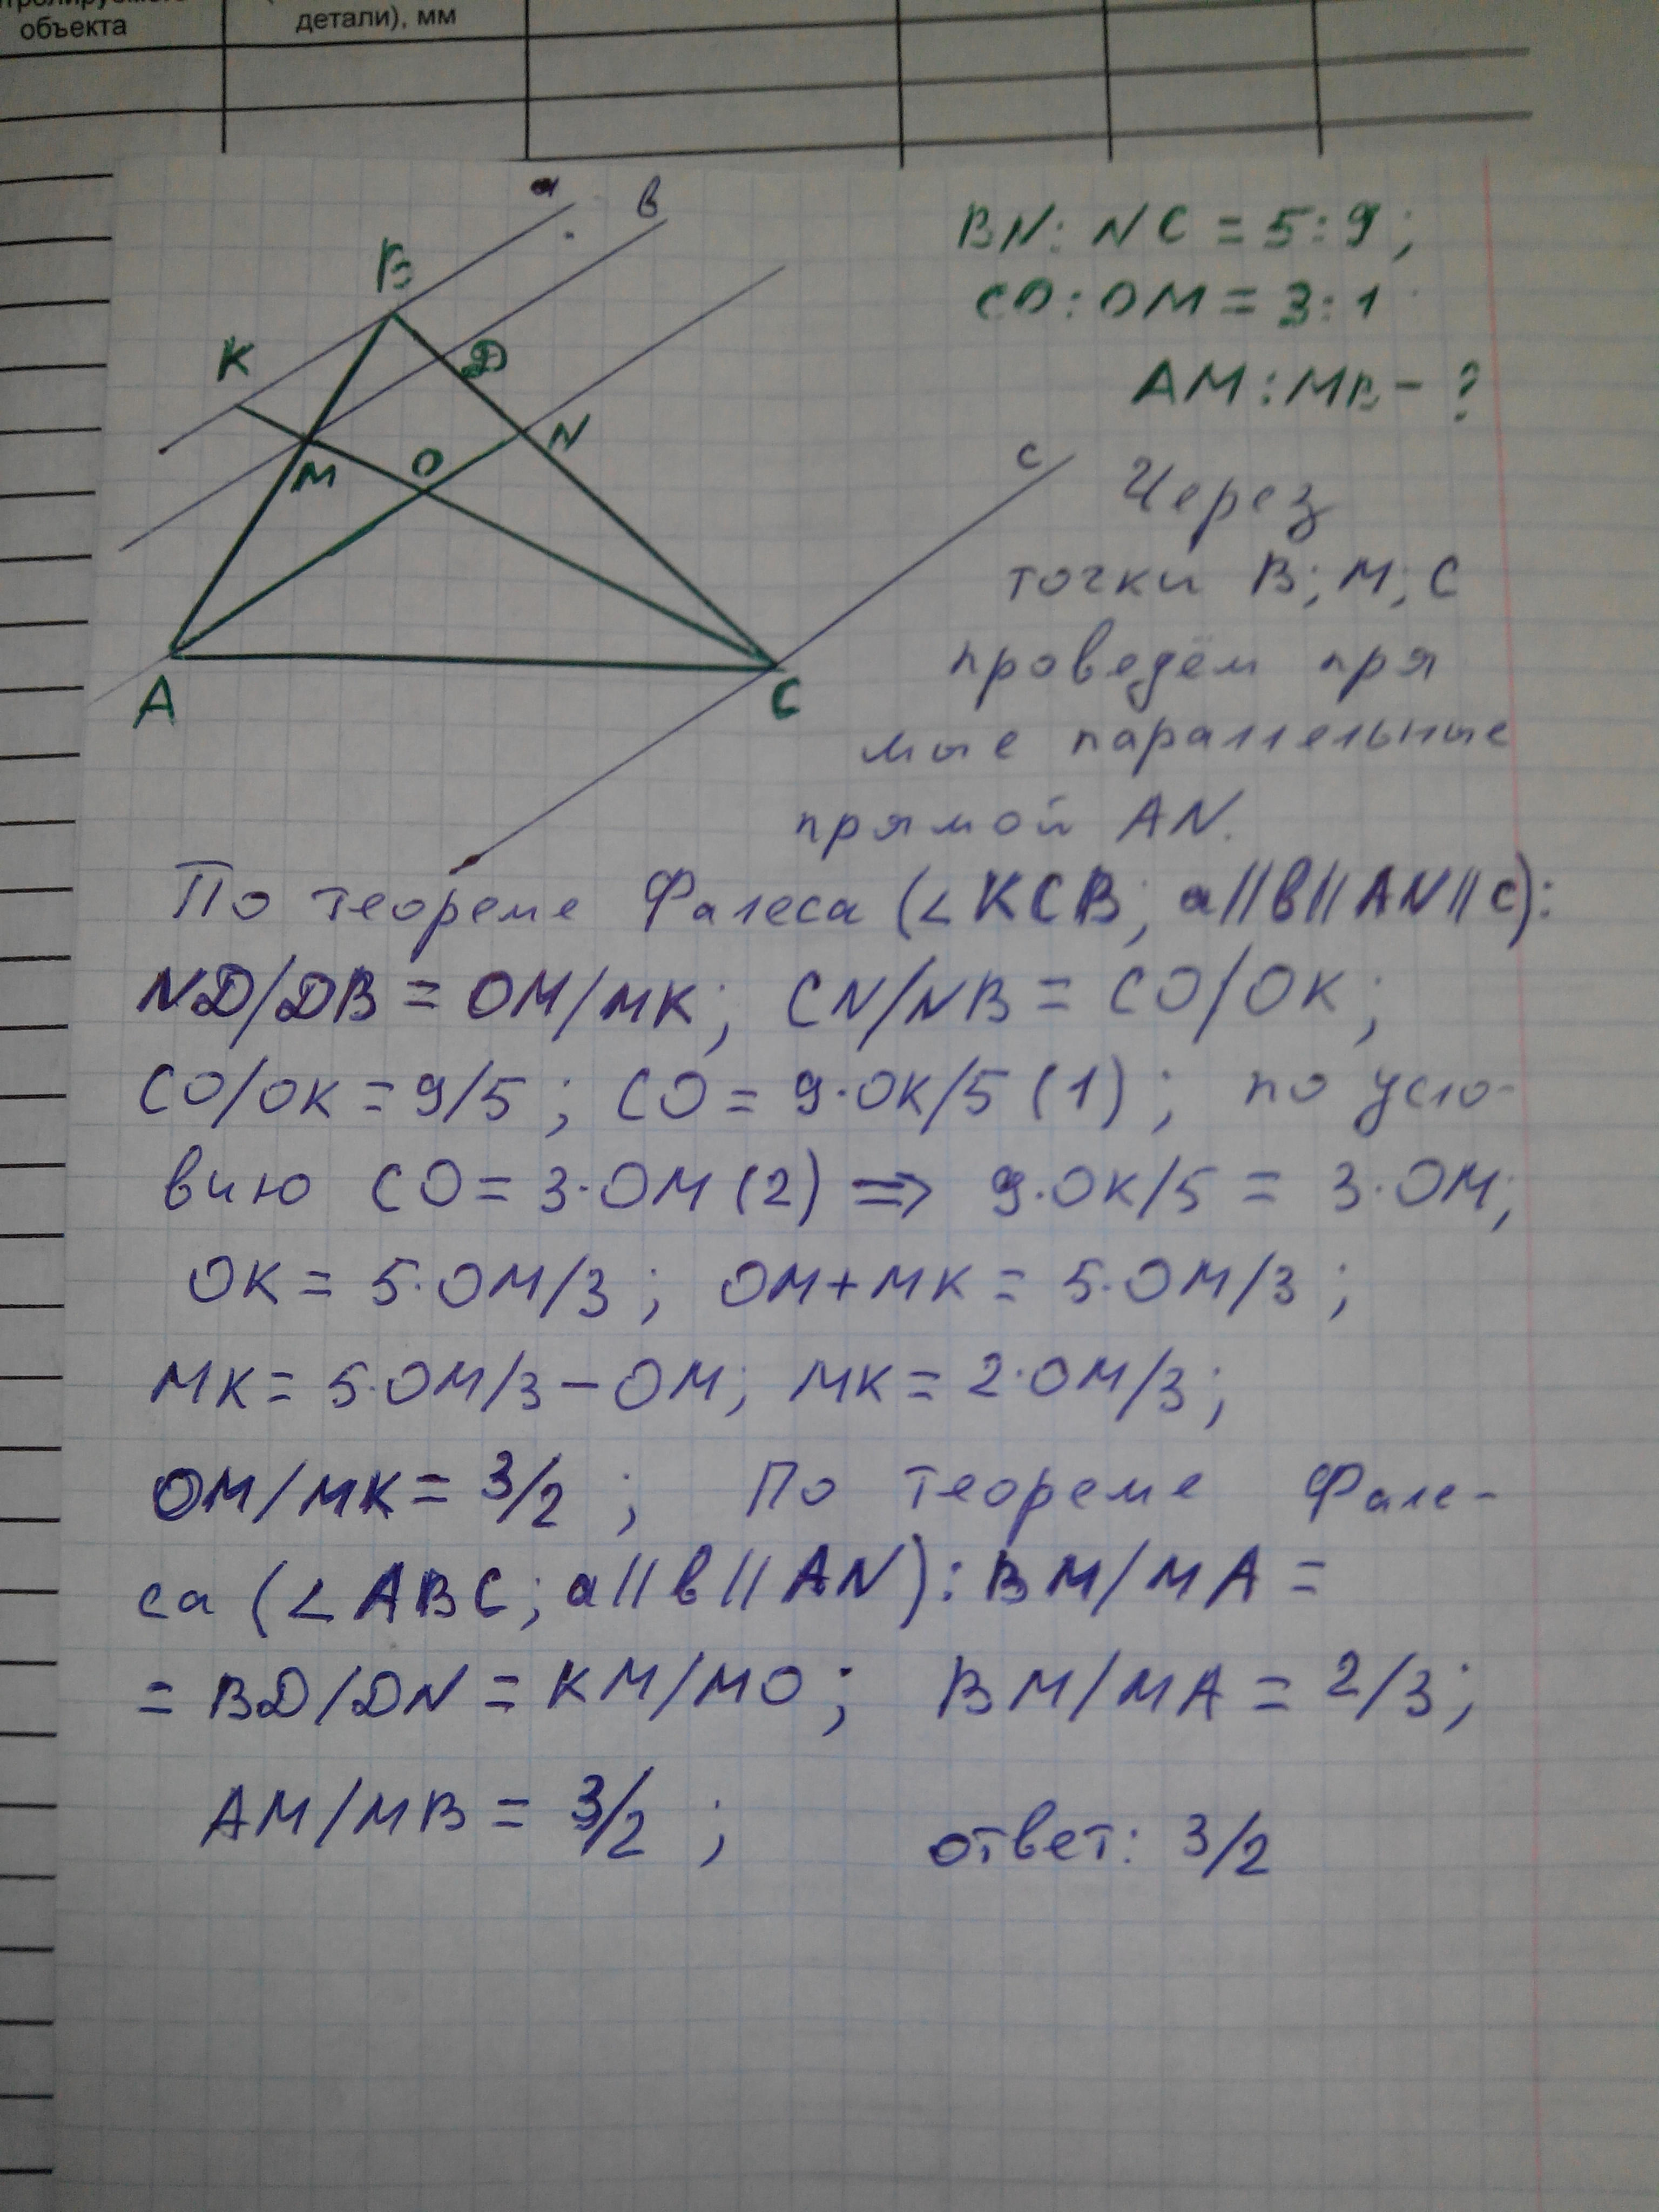 объекта
детали), мм
а
в
B
K
D
N
M
O
A
C
с
BN : NC = 5 : 9 ;
CO : OM = 3 : 1
AM : MB - ?
Через
точки B; M; C
проведём пря
мые параллельные
прямой AN.
По теореме Фалеса (∠KCB; a||b||AN||c):
ND/DB = OM/MK; CN/NB = CO/OK;
CO/OK = 9/5 ; CO = 9·OK/5 (1) ; по усло-
вию CO = 3·OM (2) => 9·OK/5 = 3·OM;
OK = 5·OM/3 ; OM+MK = 5·OM/3 ;
MK = 5·OM/3 – OM; MK = 2·OM/3;
OM/MK = 3/2 ; По теореме Фале-
са (∠ABC; a||b||AN): BM/MA =
= BD/DN = KM/MO ; BM/MA = 2/3;
AM/MB = 3/2 ; ответ: 3/2